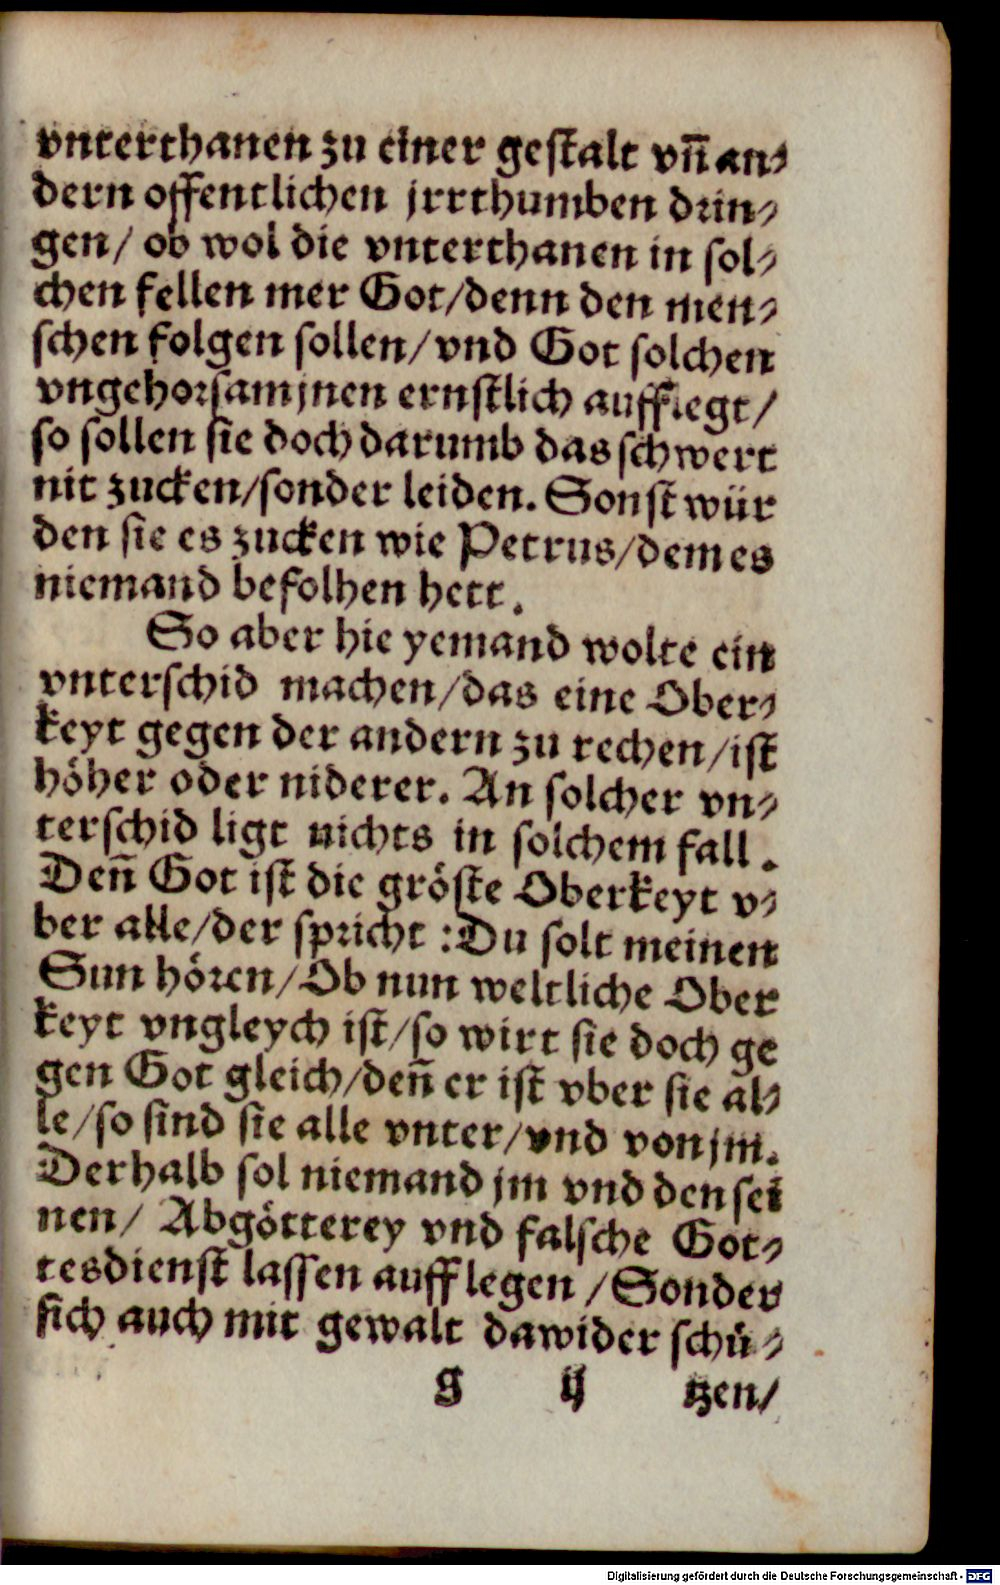 vnterthanen zu einer gestalt vñ an⸗
dern offentlichen jrrthumben drin⸗
gen/ ob wol die vnterthanen in sol⸗
chen fellen mer Got/denn den men⸗
schen folgen sollen/vnd Got solchen
vngehorsam jnen ernstlich aufflegt/
so sollen sie doch darumb das schwert
nit zucken/sonder leiden. Sonst wür
den sie es zucken wie Petrus/dem es
niemand befolhen hett.
So aber hie yemand wolte ein
vnterschid machen/das eine Ober⸗
keyt gegen der andern zu rechen/ist
höher oder niderer. An solcher vn⸗
terschid ligt nichts in solchem fall.
Deñ Got ist die gröste Oberkeyt v⸗
ber alle/der spricht :Du solt meinen
Sun hören/Ob nun weltliche Ober
keyt vngleych ist/so wirt sie doch ge
gen Got gleich/deñ er ist vber sie al⸗
le/so sind sie alle vnter/vnd von jm.
Derhalb sol niemand jm vnd den sei
nen/ Abgötterey vnd falsche Got⸗
tesdienst lassen aufflegen /Sonder
sich auch mit gewalt dawider schü⸗
g ij tzen/
Digitalisierung gefördert durch die Deutsche Forschungsgemeinschaft - DFG